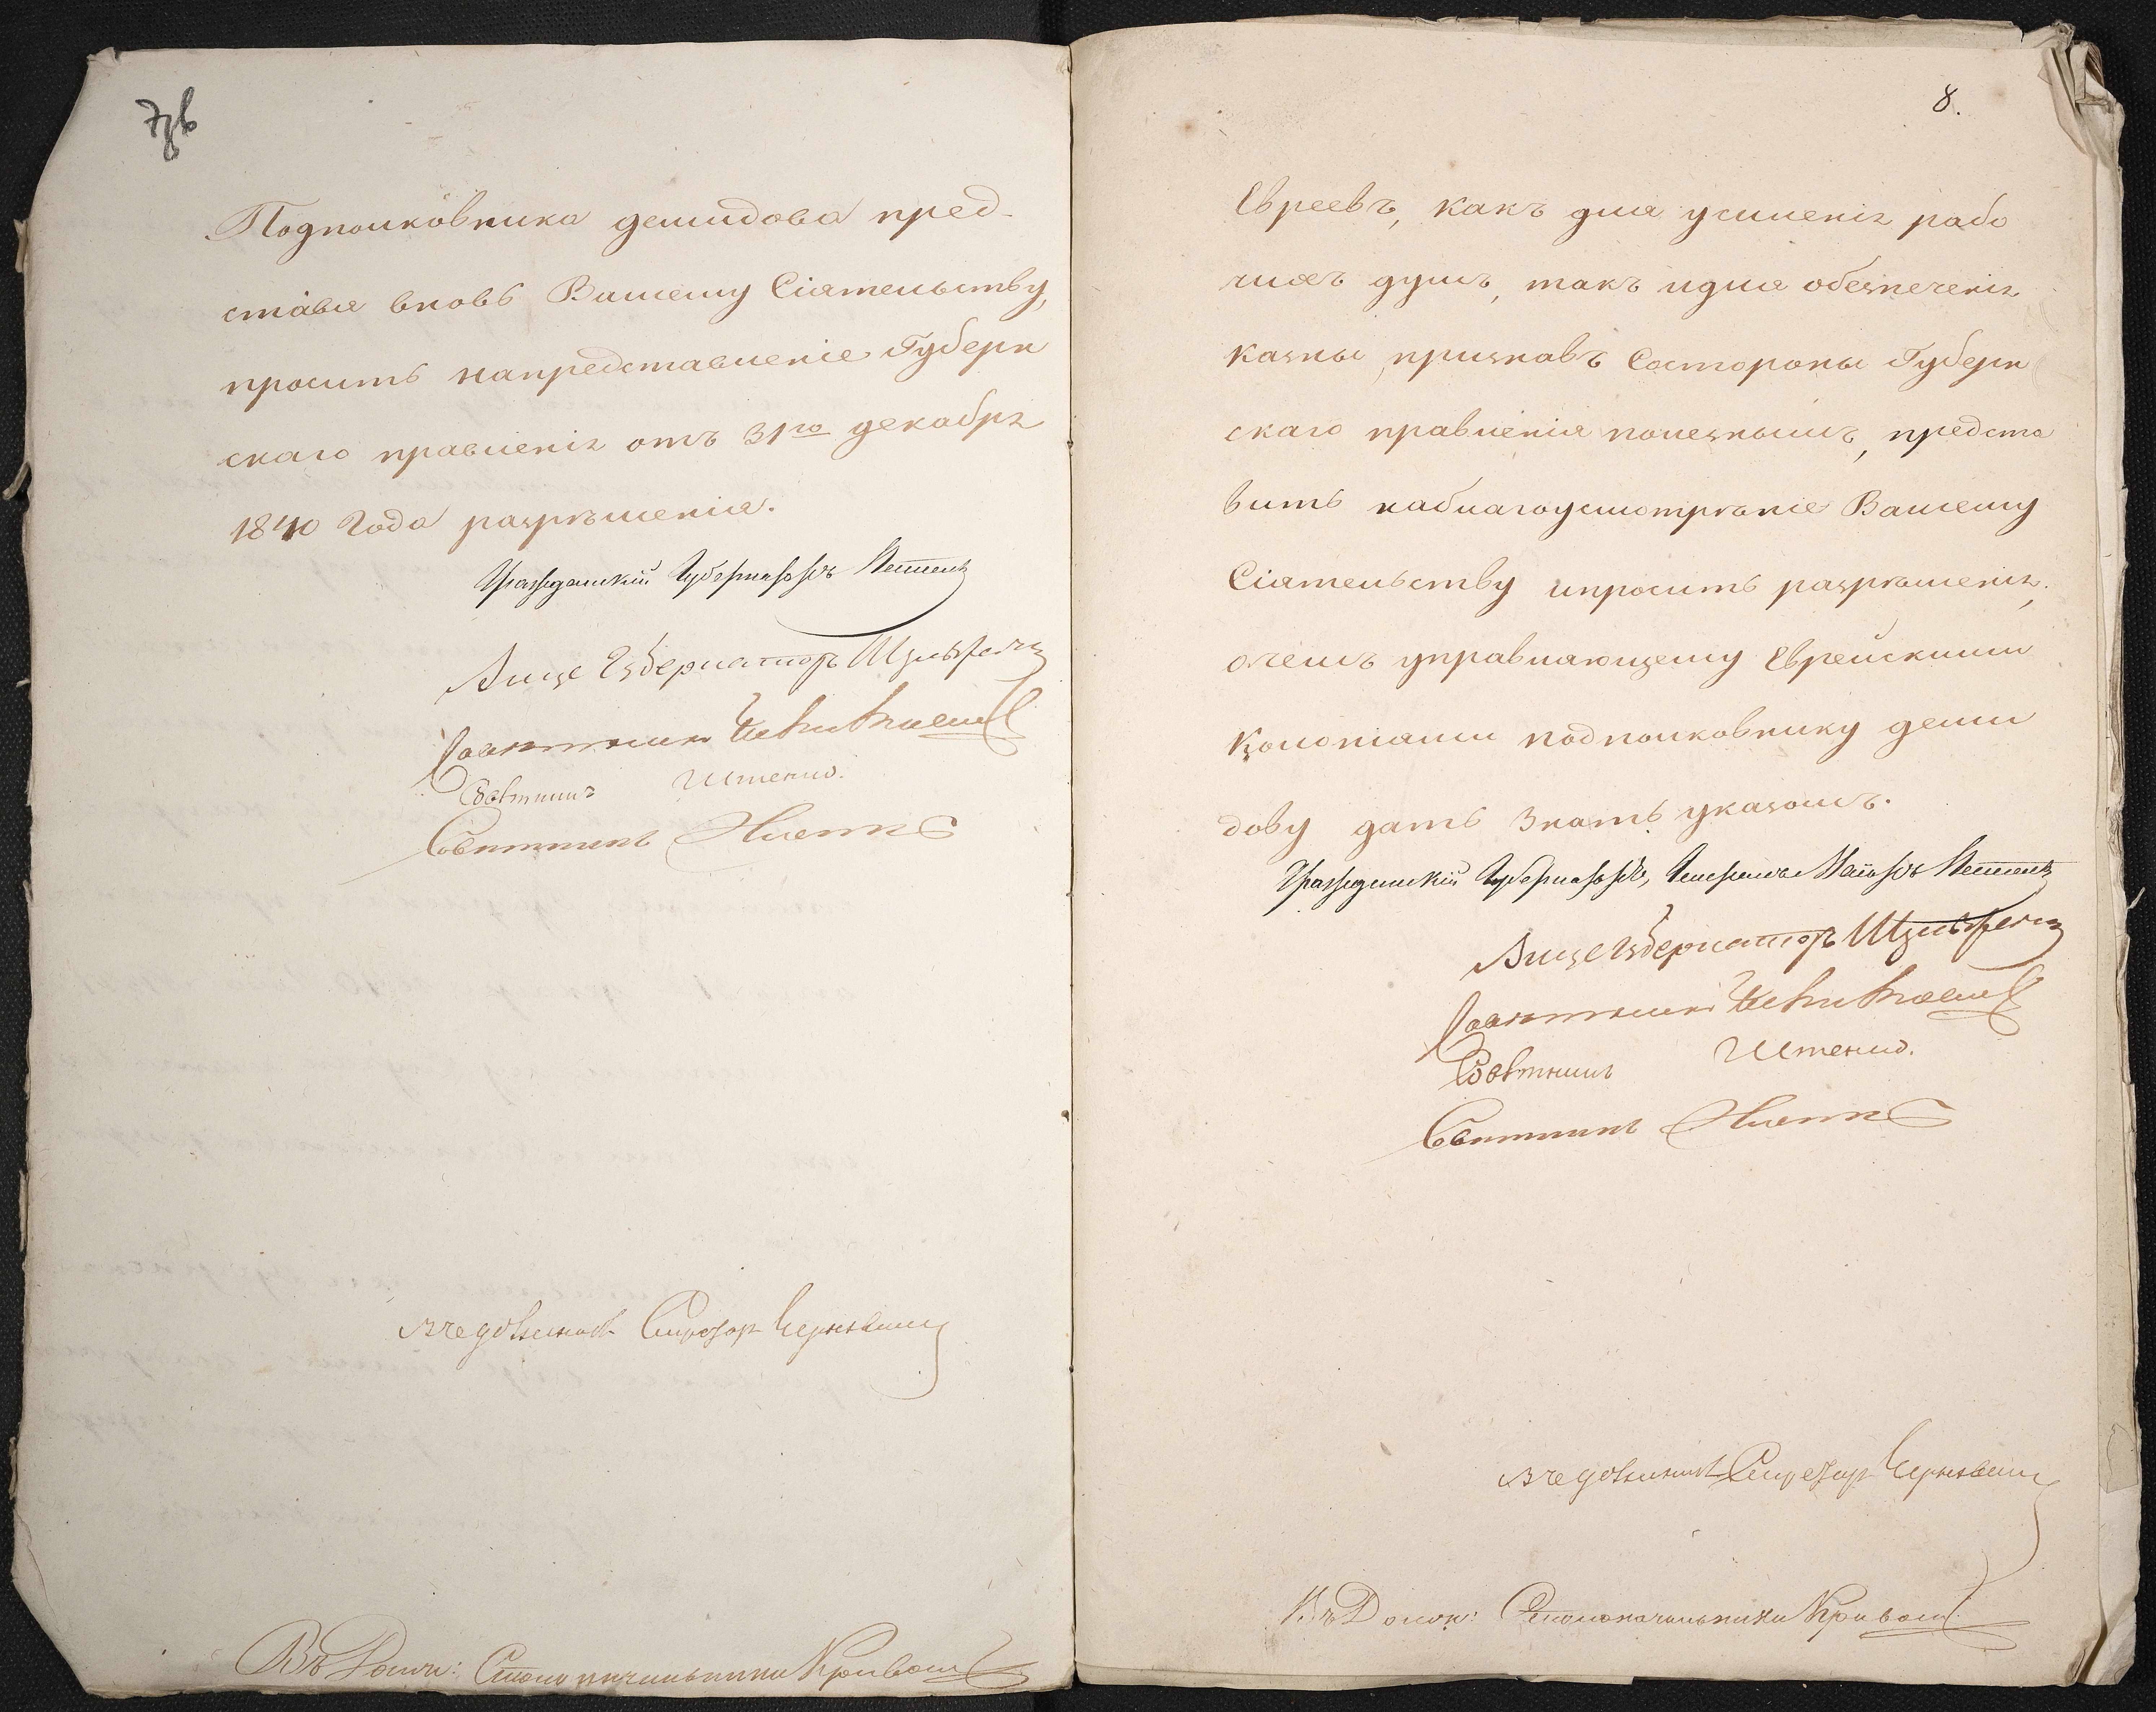 7зв
Подполковника Демидова пред-
ставя вновь Вашему Сіятельству,
просить на представленіе Губерн
скаго правленія отъ 31го декабря
1840 года разрешенія.
Гражданскій Губернаторъ
Вице Губернаторъ
Советникъ
Советникъ
Советникъ
Секретарь
Въ Долж: Столоначальника
8.
Евреевъ, какъ для усиленія рабо
чихъ душъ, такъ и для обезпеченія
казны, признавъ со стороны Губерн
скаго правленія полезнымъ, предста
вить на благоусмотреніе Вашему
Сіятельству и просить разрешенія,
о чемъ управляющему Еврейскими
Колоніями подполковнику Деми
дову дать знать указомъ.
Гражданскій Губернаторъ, Генералъ Маіоръ
Вице Губернаторъ
Советникъ
Советникъ
Советникъ
Секретарь
Въ Долж: Столоначальника